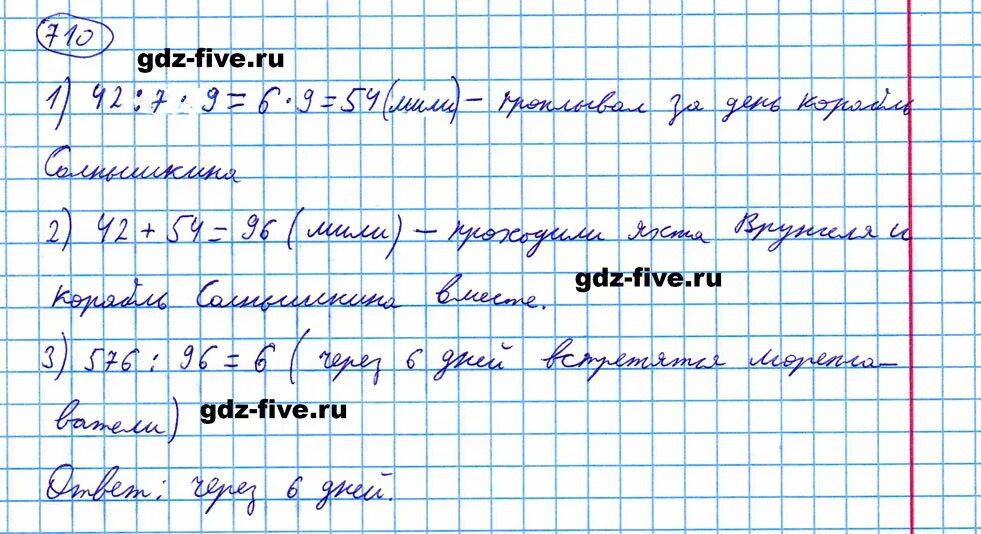 710
gdz-five.ru
1) 42 : 7 · 9 = 6 · 9 = 54 (мили) – проплывал за день корабль
Солнышкина
2) 42 + 54 = 96 (мили) – проходили яхта Врунгеля и
gdz-five.ru
корабль Солнышкина вместе.
3) 576 : 96 = 6 (через 6 дней встретятся морепла-
ватели)
gdz-five.ru
Ответ: через 6 дней.